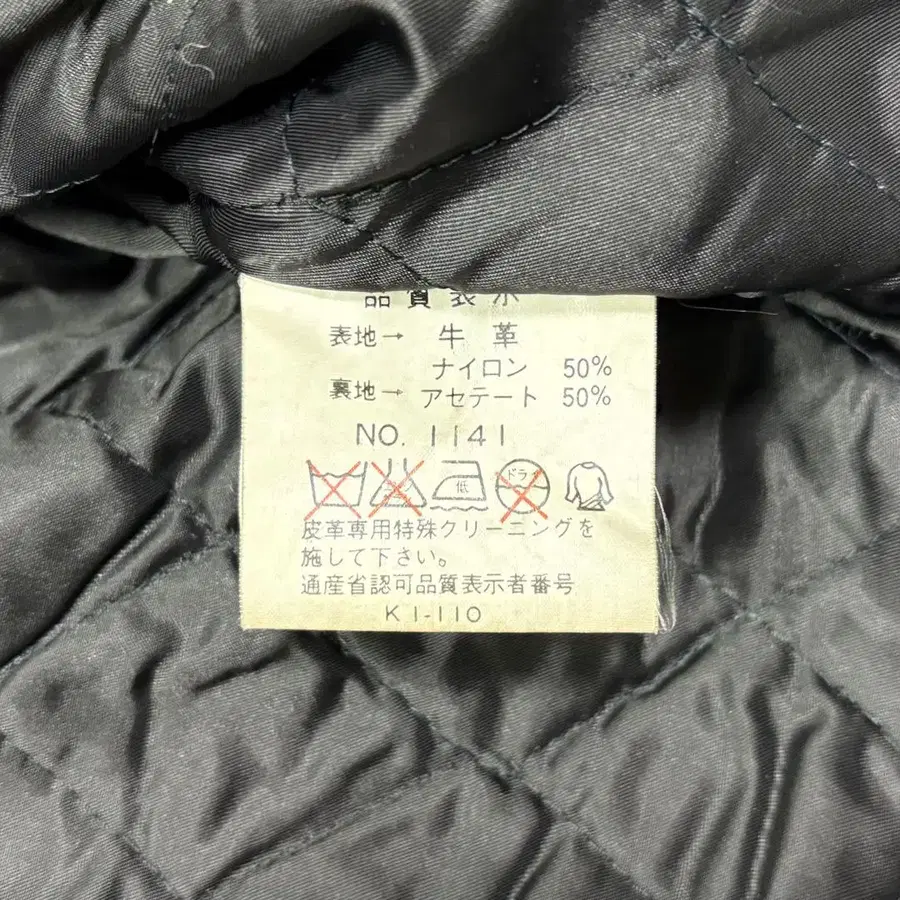 品質表示
表地→ 牛革
ナイロン 50%
裏地→ アセテート 50%
NO. 1141
低 ドライ
皮革専用特殊クリーニングを
施して下さい。
通産省認可品質表示者番号
K1-110